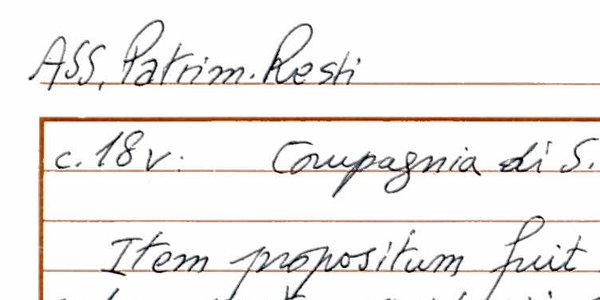 ASS, Patrim. Resti
c. 18v: Compagnia di S.
Item propositum fuit